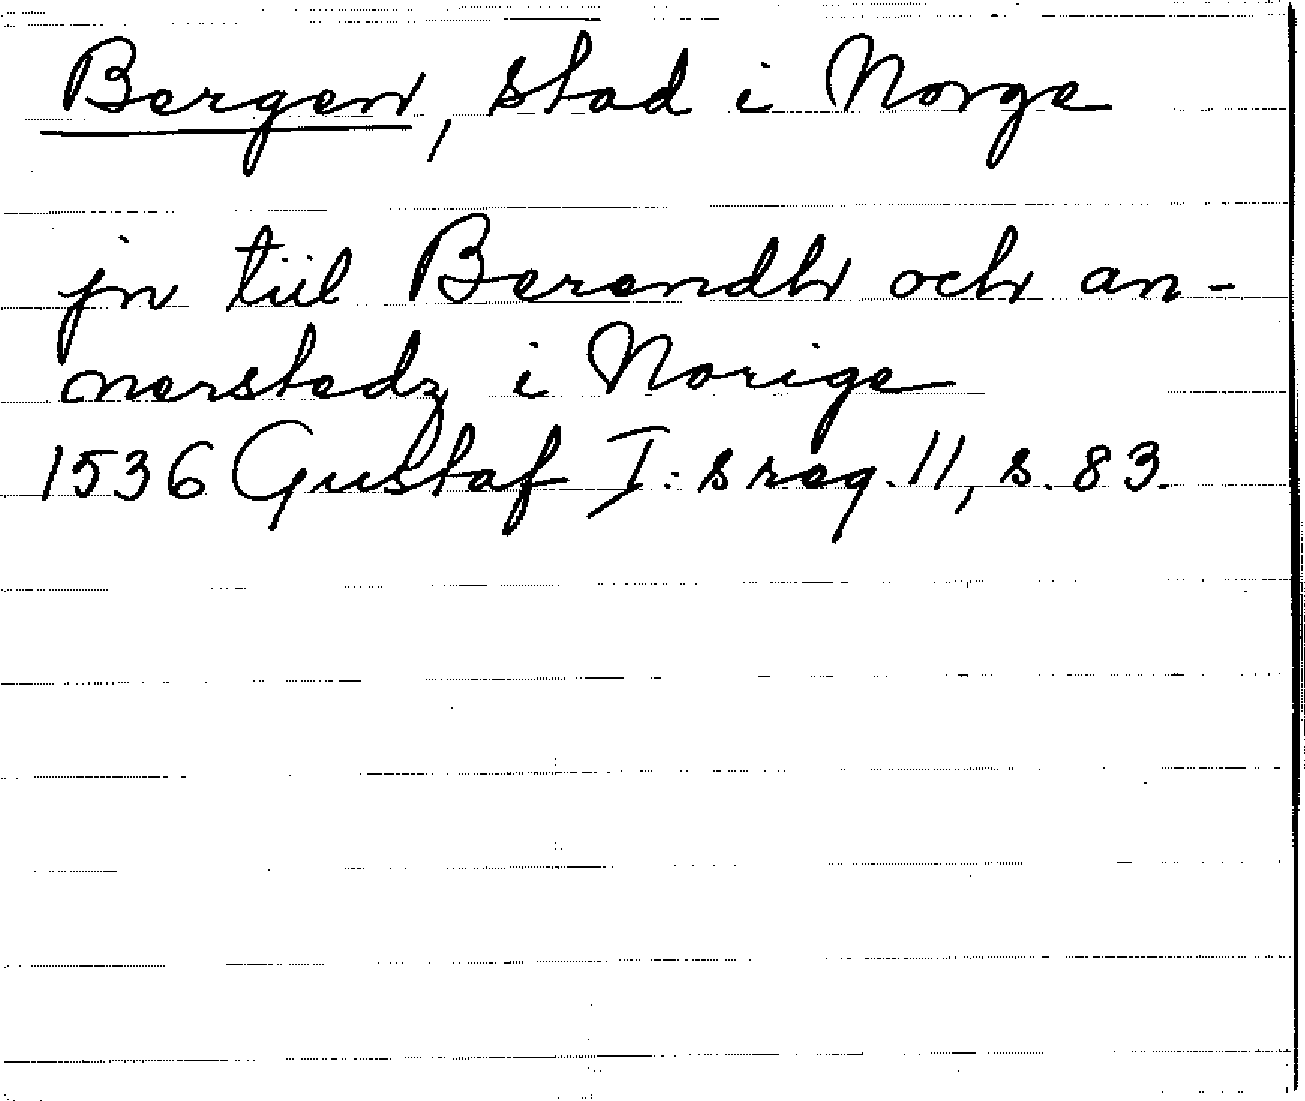 Bergen, stad i Norge
jn tiil Berendh och an-
nerstedz i Norige
1536 Gustaf I:s reg. 11, s. 83.